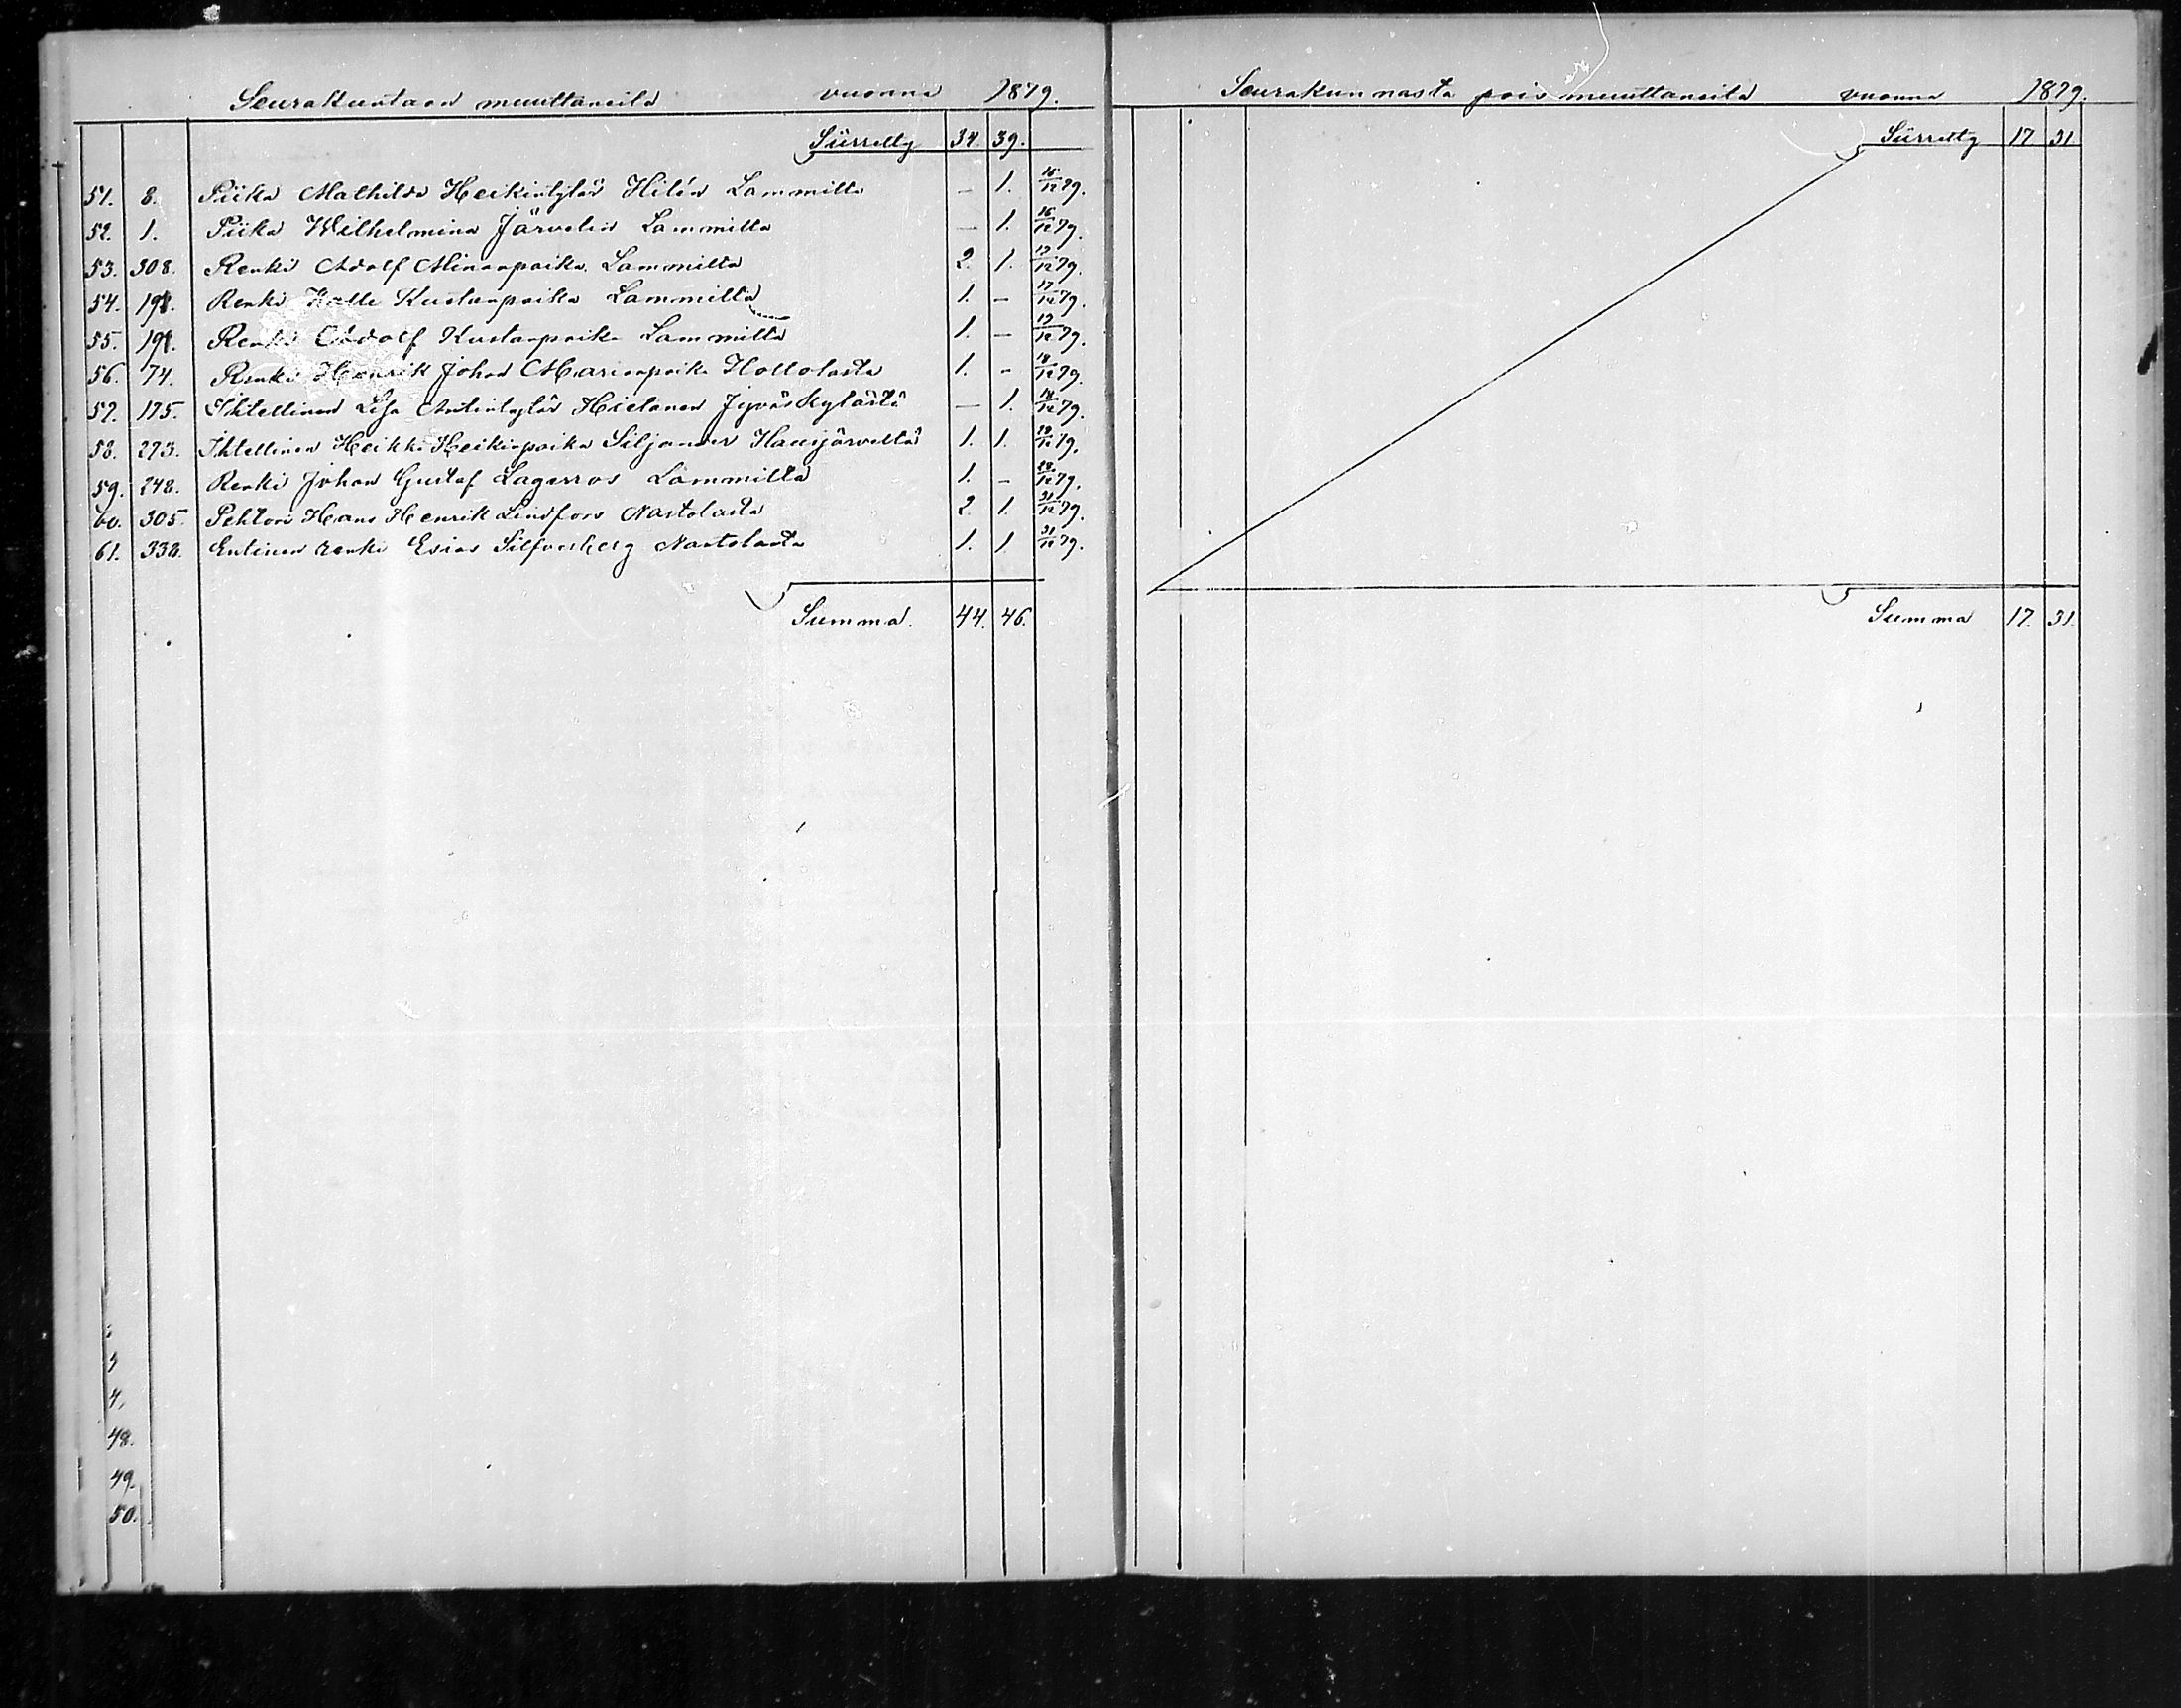 Seurakuntaan muuttaneita vuonna 1879.
Siirretty 34. 39.
51. 8. Piika Mathilda Heikintytär Hilén Lammilta — 1. 15/12 79.
52. 1. Piika Wilhelmina Järvelin Lammilta — 1. 16/12 79.
53. 308. Renki Adolf Minanpoika Lammilta 2. 1. 17/12 79.
54. 198. Renki Kalle Kustaanpoika Lammilta 1. — 17/12 79.
55. 198. Renki Adolf Kustaanpoika Lammilta 1. — 17/12 79.
56. 74. Renki Henrik Johan Marianpoika Hollolasta 1. - 18/12 79.
57. 175. Ihtellinen Lisa Antintytär Hietanen Jyväskylästä — 1. 14/12 79.
58. 273. Ihtellinen Heikki Heikinpoika Siljander Hausjärveltä 1. 1. 19/12 79.
59. 248. Renki Johan Gustaf Lagerros Lammilta 1. - 22/12 79.
60. 305. Pehtori Hans Henrik Lindfors Nastolasta 2. 1. 31/12 79.
61. 338. Entinen renki Esias Silfverberg Nastolasta 1. 1. 31/12 79.
Summa. 44. 46.
4,
48.
49.
50.
Seurakunnasta pois muuttaneita vuonna 1879.
Siirretty 17 31
Summa 17. 31.